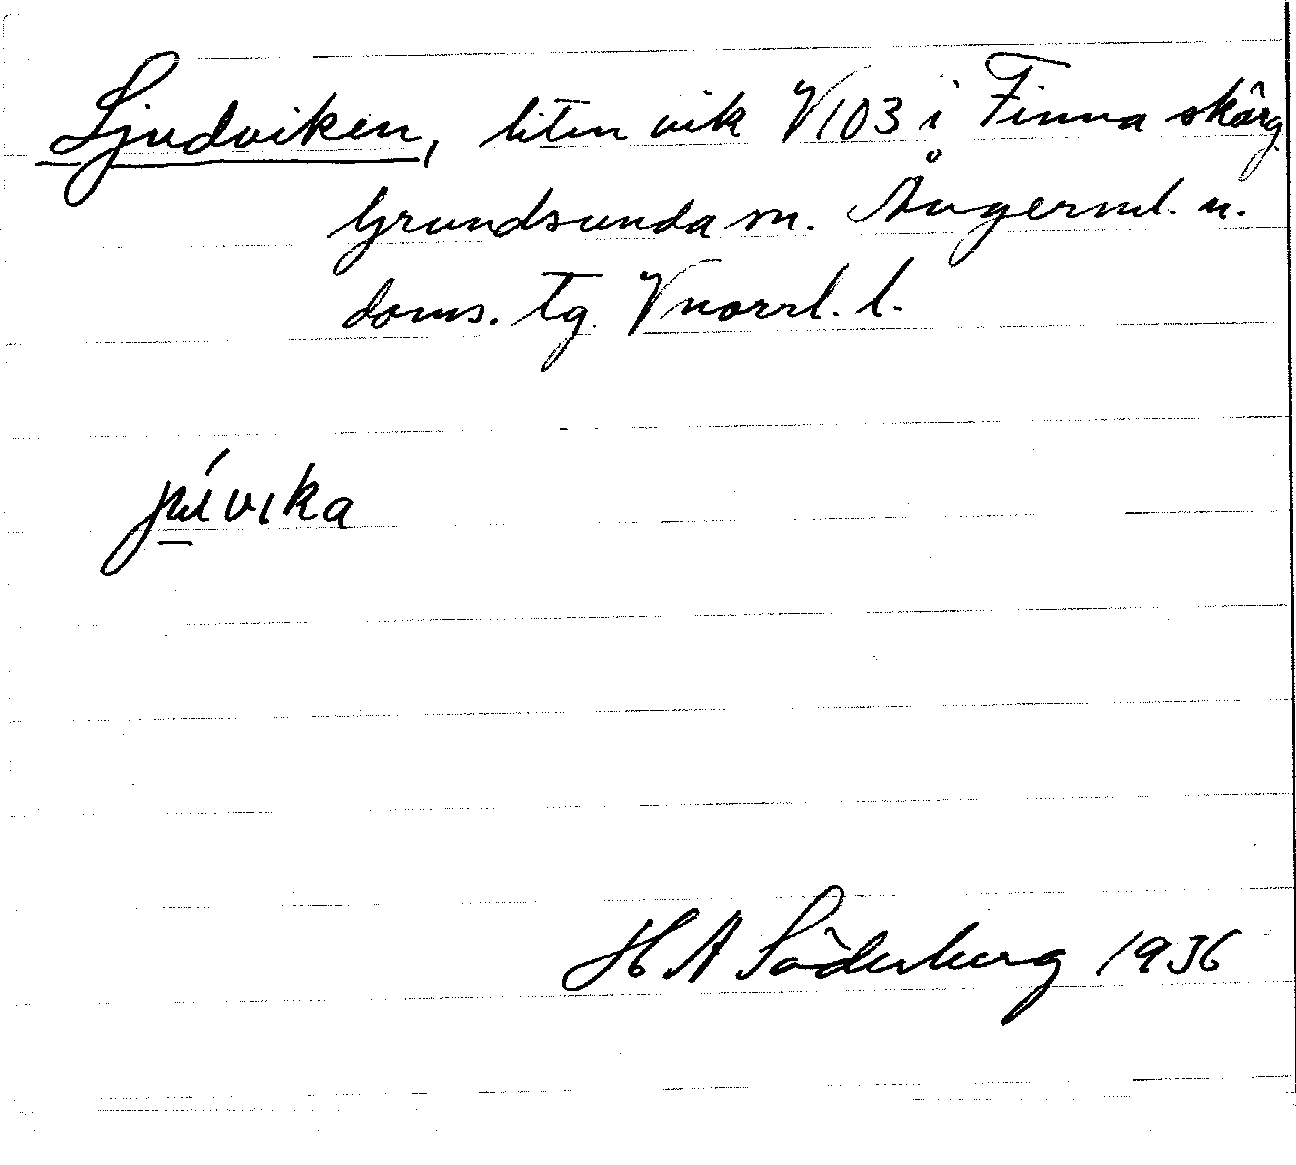 Ljudviken, liten vik V103 i Finna skärg.
Grundsunda sn. Ångerml. n.
doms. tg. Vnorrl. l.
H A Söderberg 1936